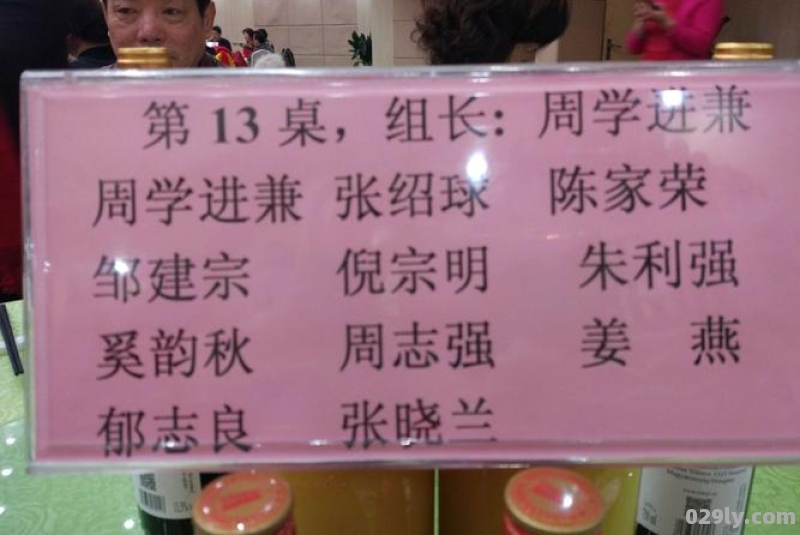 第 13 桌，组长：周学进兼
周学进兼 张绍球 陈家荣
邹建宗 倪宗明 朱利强
奚韵秋 周志强 姜 燕
郁志良 张晓兰
029ly.com